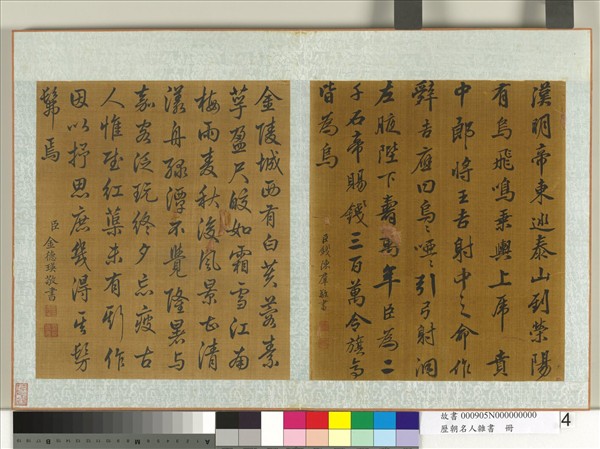 漢明帝東巡泰山到滎陽
有烏飛鳴乘輿上虎賁
中郎將王吉射中之命作
辭吉應曰烏烏啞啞引弓射洞
左腋陛下壽萬年臣為二
千石帝賜錢三百萬令旗亭
皆為烏
臣錢陳羣敬書
金陵城西有白芙蓉素
萼盈尺皎如霜雪江南
梅雨麦秋後風景甚清
漾舟綠潭不覺隆暑与
嘉客泛玩終夕忘疲古
人惟賦紅蕖未有斯作
因以抒思庶幾得其髣
髴焉
臣金德瑛敬書
故書 000905N000000000
歷朝名人雜書 冊
4